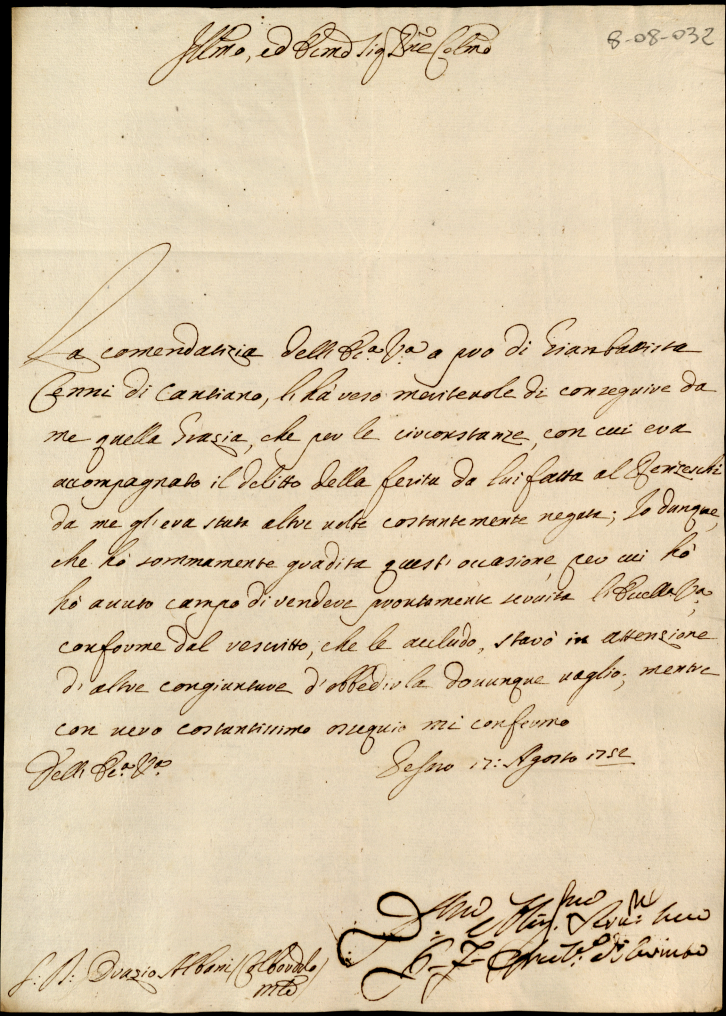 8-08-032
Illmo, ed Ecmo Sig Prõe Colmo
La comendatizia dell' Ec:a V:a a pro di Gianbattista
Cenni di Cantiano, li hà reso meritevole di conseguire da
me quella Grazia, che per le circonstanze, con cui era
accompagnato il delitto della ferita da lui fatta al
da me gl'era stata altre volte costantemente negata; Io dunque,
che hò sommamente gradita quest'occasione, per cui hò
hò avuto campo di rendere prontamente servita l'Ecc:a V:a,
conforme dal rescritto, che le accludo, starò in attenzione
d'altre congiunture d'obbedirla dovunque vaglio; mentre
con vero costantissimo ossequio mi confermo
Dell' Ec:a V:a
Pesaro 17: Agosto 1752
S: D: Orazio Albani / Colbordolo /